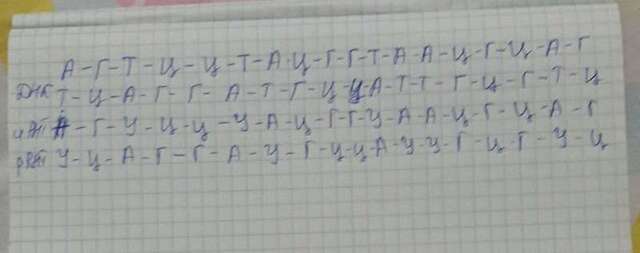 А-Г-Т-Ц-Ц-Т-А-Ц-Г-Г-Т-А-А-Ц-Г-Ц-А-Г
ДНК Т-Ц-А-Г-Г-А-Т-Г-Ц-Ц-А-Т-Т-Г-Ц-Г-Т-Ц
А-Г-У-Ц-Ц-У-А-Ц-Г-Г-У-А-А-Ц-Г-Ц-А-Г
У-Ц-А-Г-Г-А-У-Г-Ц-Ц-А-У-У-Г-Ц-Г-У-Ц